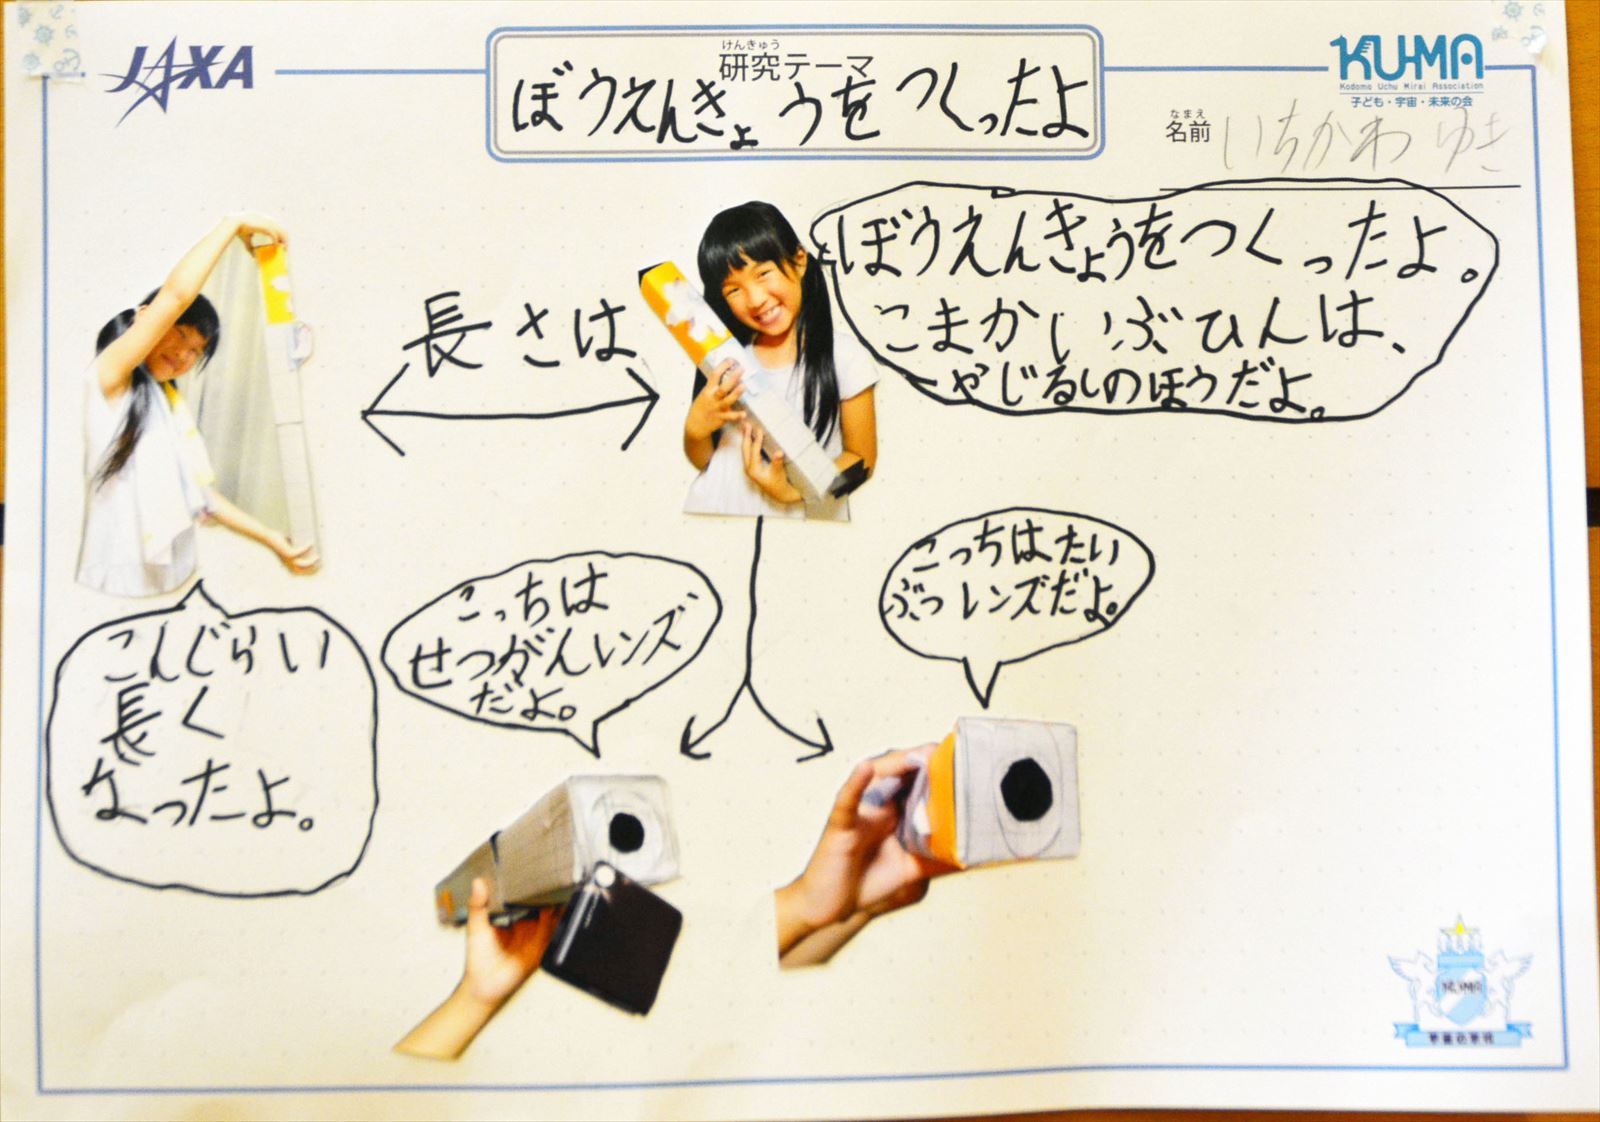 JAXA
けんきゅう
研究テーマ
ぼうえんきょうをつくったよ
KU-MA
Kodomo Uchu Mirai Association
子ども・宇宙・未来の会
なまえ
名前 いちかわ ゆき
ぼうえんきょうをつくったよ。
こまかいぶひんは、
やじるしのほうだよ。
長さは
こんぐらい
長く
なったよ。
こっちは
せつがんレンズ
だよ。
こっちはたい
ぶつレンズだよ。
KU-MA